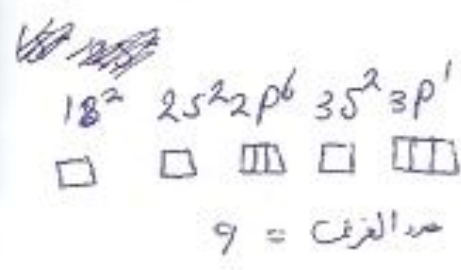 1s² 2s² 2p⁶ 3s² 3p¹
عدد الغرف = 9